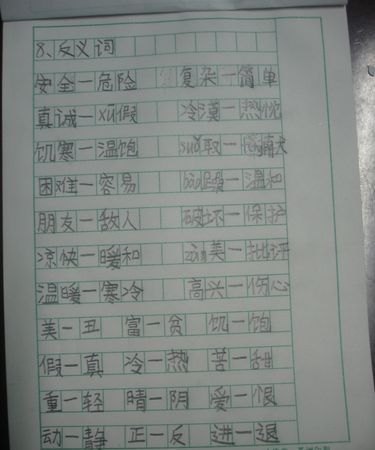 8、反义词
安全一危险 复杂一简单
真诚一xū假 冷漠一热忱
饥寒一温饱 suǒ取一
困难一容易 bào躁一温和
朋友一敌人 破坏一保护
凉快一暖和 zàn美一批评
温暖一寒冷 高兴一伤心
美一丑 富一贫 饥一饱
假一真 冷一热 苦一甜
重一轻 晴一阴 爱一恨
动一静 正一反 进一退